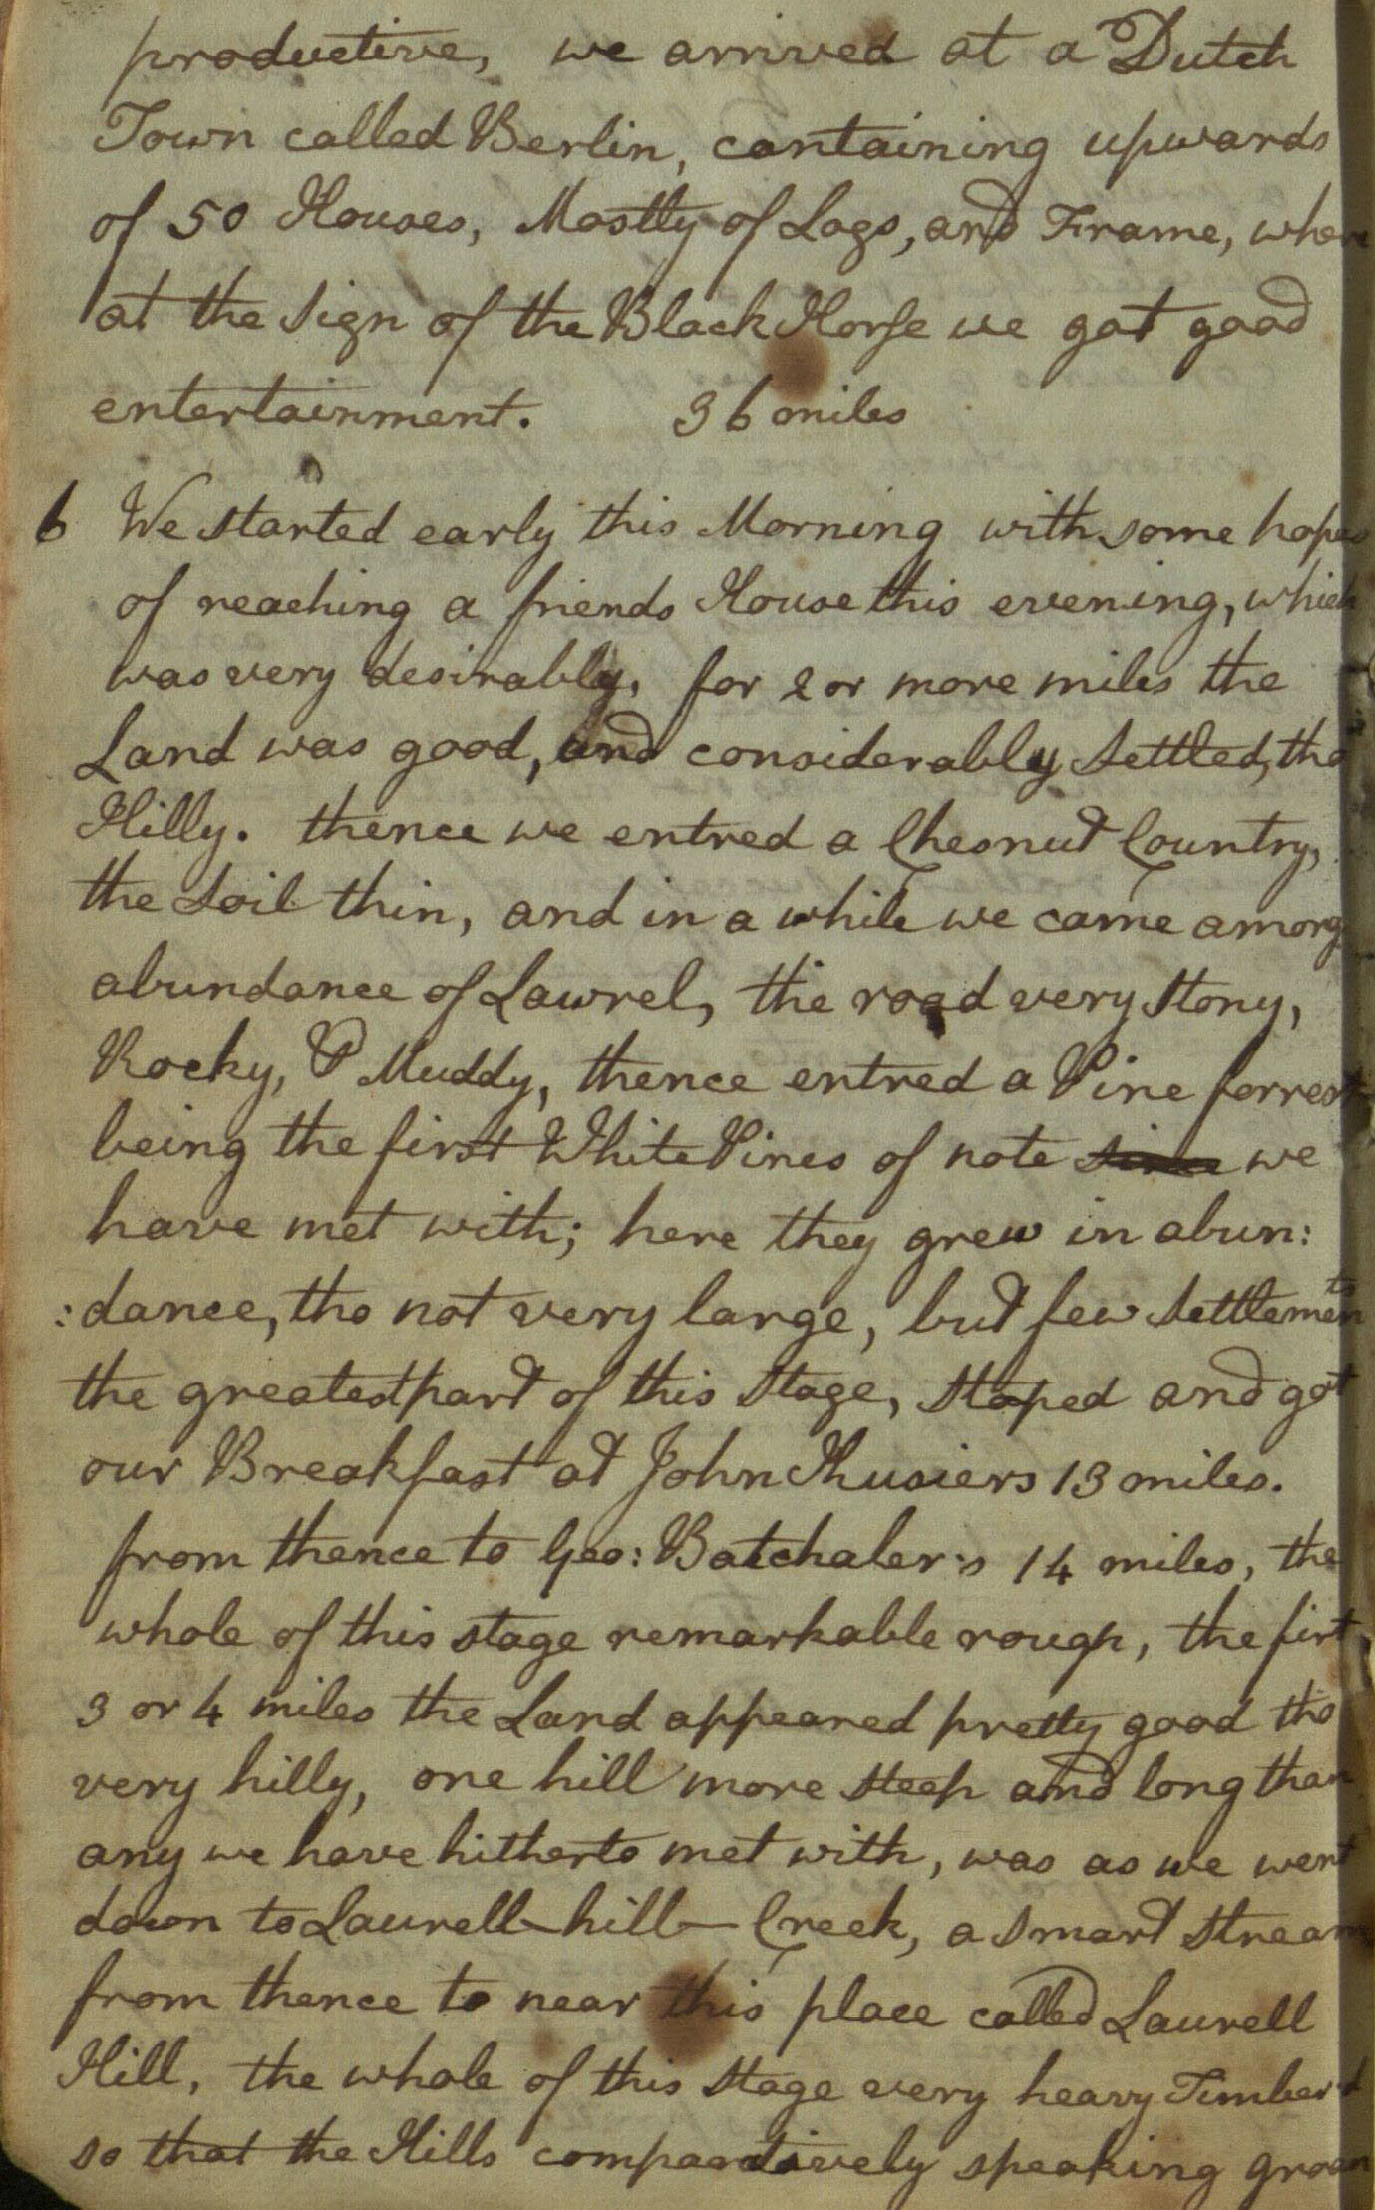 productive, we arrived at a Dutch
Town called Berlin, containing upwards
of 50 Houses, Mostly of Logs, and Frame, where
at the Sign of the Black Horse we got good
entertainment. 36 miles
6 We started early this Morning with some hopes
of reaching a friends House this evening, which
was very desirably, for 2 or more miles the
Land was good, and considerably Settled, tho
Hilly. thence we entred a Chesnut Country,
the Soil thin, and in a while we came among
abundance of Lawrel, the road very Stony,
Rocky, & Muddy, thence entred a Pine forrest
being the first White Pines of note we
have met with; here they grew in abun:
:dance, tho not very large, but few Settlements
the greatest part of this Stage, Stoped and got
our Breakfast at John 13 miles.
from thence to Geo: Batchaler's 14 miles, the
whole of this stage remarkable rough, the firt
3 or 4 miles the Land appeared pretty good tho
very hilly, one hill more steep and long than
any we have hitherto met with, was as we went
down to Laurell hill Creek, a Smart Stream
from thence to near this place called Laurell
Hill, the whole of this Stage very heavy Timber'd
so that the Hills speaking groan